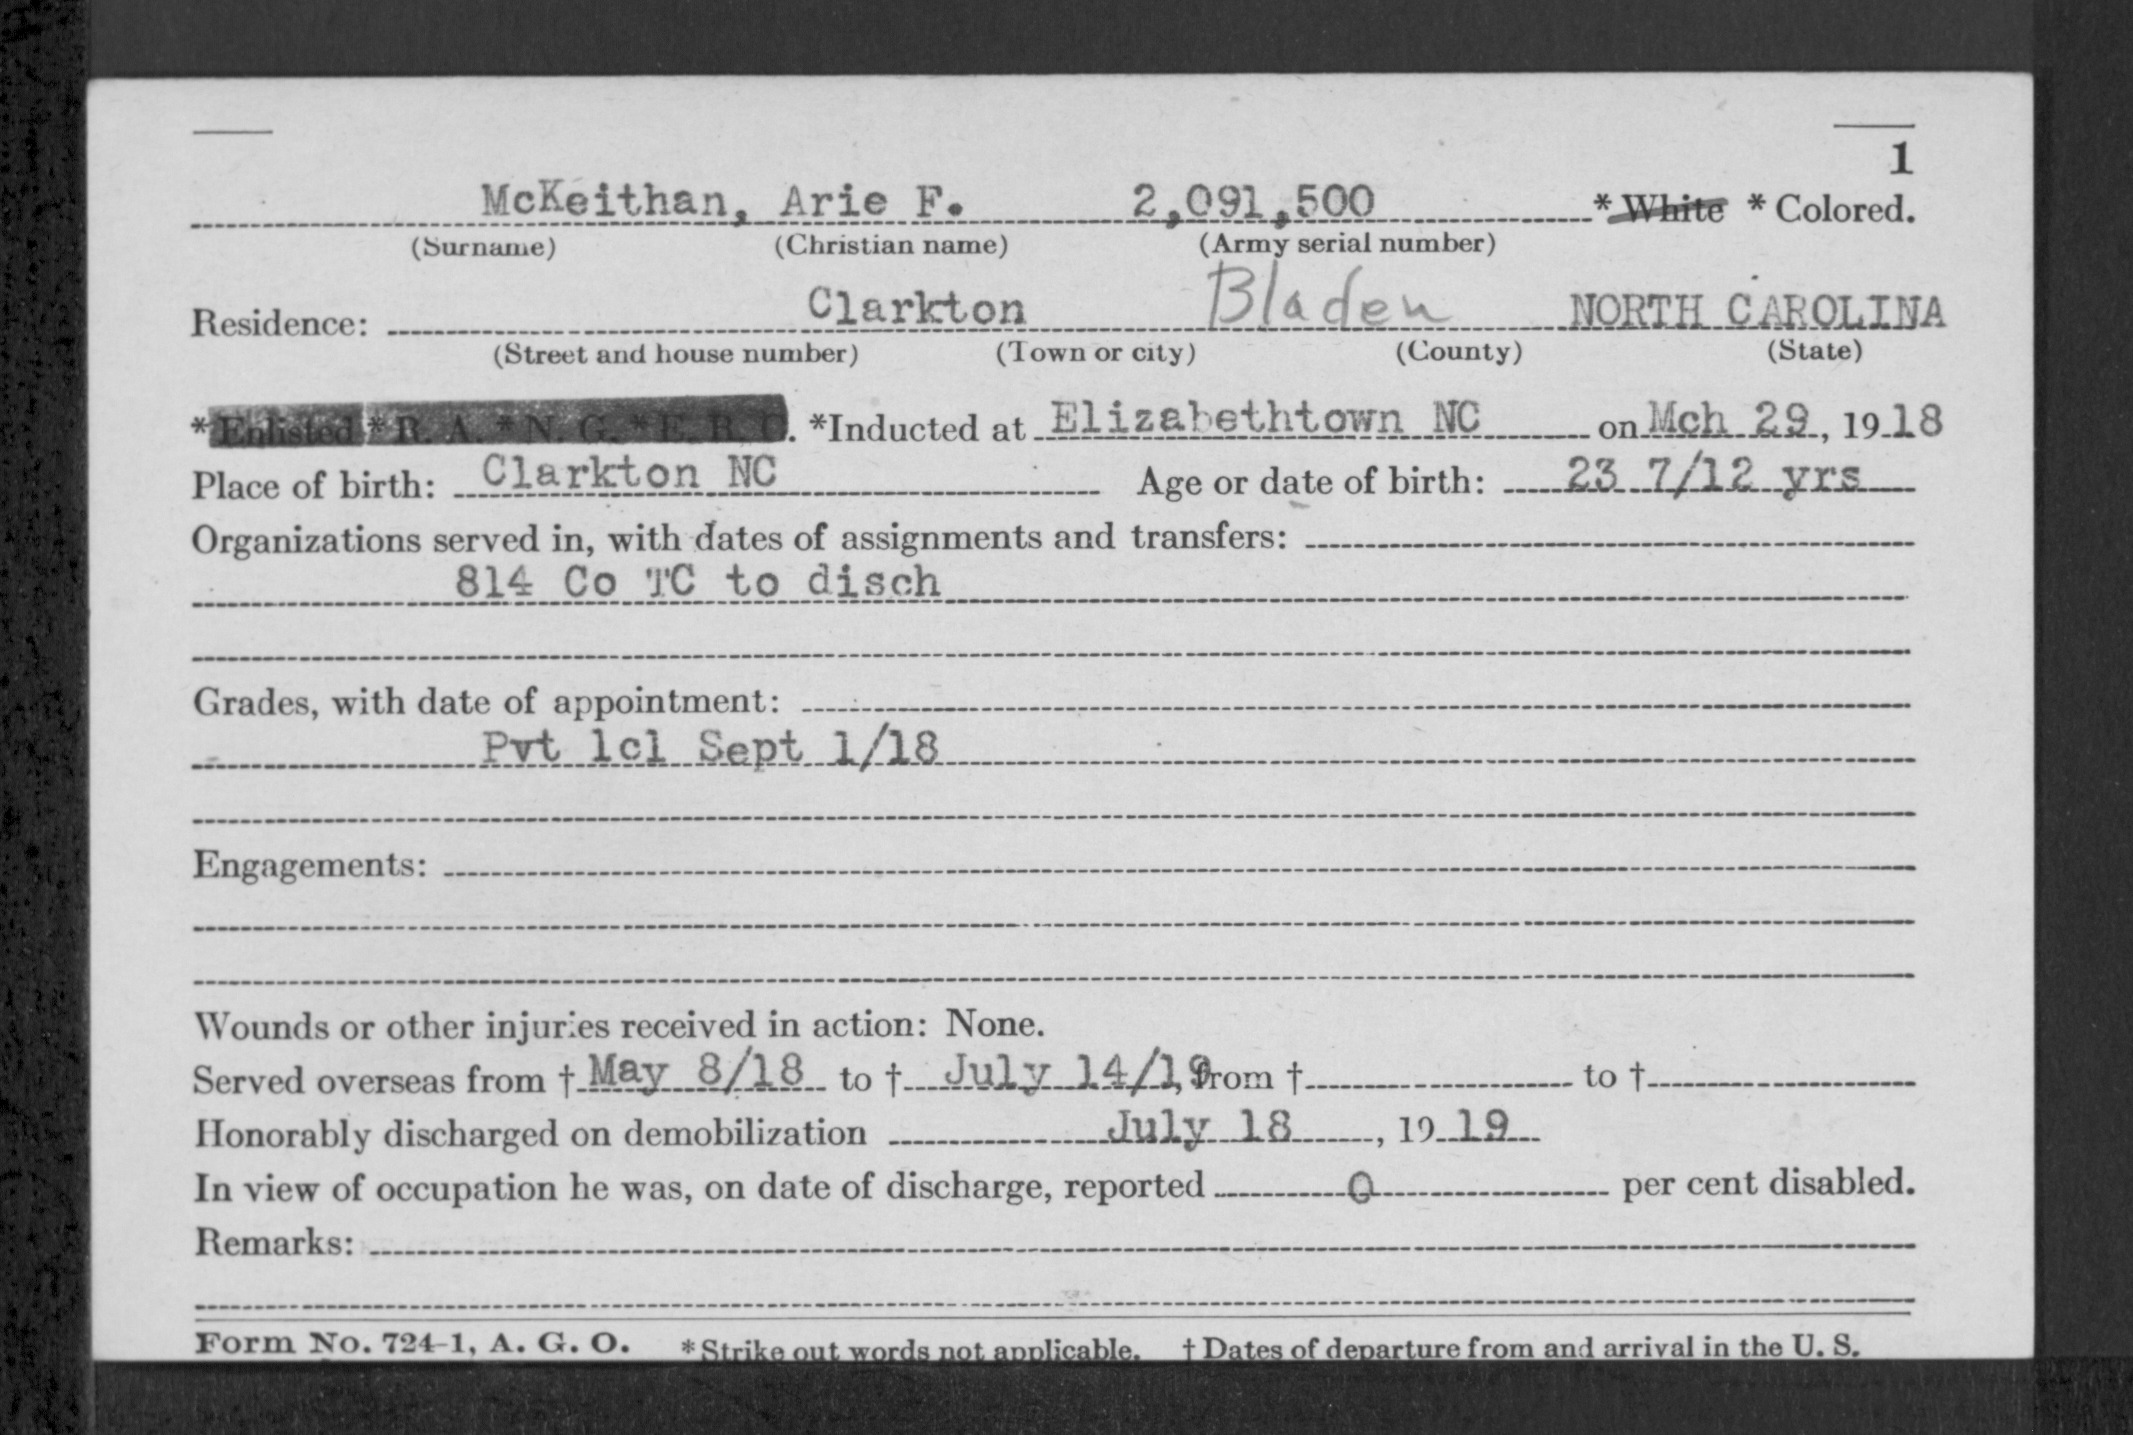 1
McKeithan, Arie F. 2,091,500 * White * Colored.
(Surname) (Christian name) (Army serial number)
Residence: Clarkton Bladen NORTH CAROLINA
(Street and house number) (Town or city) (County) (State)
*Enlisted *R. A. *N. G. *E. R. C. *Inducted at Elizabethtown NC on Mch 29, 1918
Place of birth: Clarkton NC Age or date of birth: 23 7/12 yrs
Organizations served in, with dates of assignments and transfers:
814 Co TC to disch
Grades, with date of appointment:
Pvt 1cl Sept 1/18
Engagements:
Wounds or other injuries received in action: None.
Served overseas from † May 8/18 to † July 14/19, from † to †
Honorably discharged on demobilization July 18, 1919
In view of occupation he was, on date of discharge, reported 0 per cent disabled.
Remarks:
Form No. 724-1, A. G. O. *Strike out words not applicable. † Dates of departure from and arrival in the U. S.